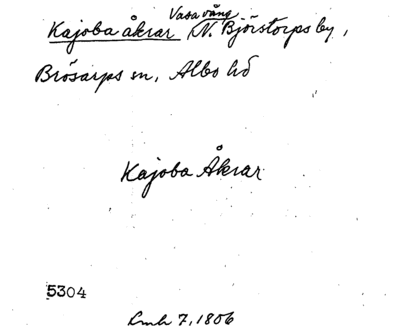 Vasa vång
Kajoba åkrar N. Björstorps by,
Brösarps sn, Albo hd
Kajoba Åkrar
5304
Lmh 7, 1806